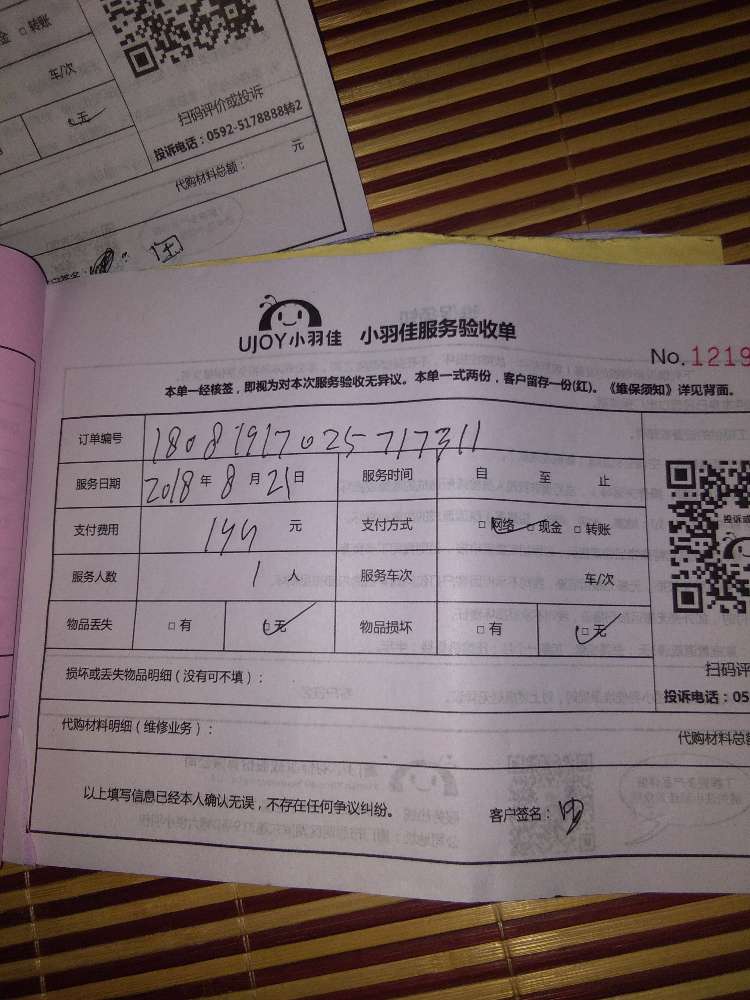 金 □ 转账
车/次
□ 无
扫码评价或投诉
投诉电话：0592-5178888转2
代购材料总额： 元
户签名：
UJOY小羽佳 小羽佳服务验收单
No. 1219
本单一经核签，即视为对本次服务验收无异议。本单一式两份，客户留存一份(红)。《维保须知》详见背面。
订单编号 18081917025717311
服务日期 2018 年 8 月 21 日 服务时间 自 至 止
支付费用 144 元 支付方式 □ 网络 □ 现金 □ 转账
服务人数 1 人 服务车次 车/次
物品丢失 □ 有 □ 无 物品损坏 □ 有 □ 无
损坏或丢失物品明细（没有可不填）： 扫码评
投诉电话：05
代购材料明细（维修业务）： 代购材料总额
以上填写信息已经本人确认无误，不存在任何争议纠纷。 客户签名：